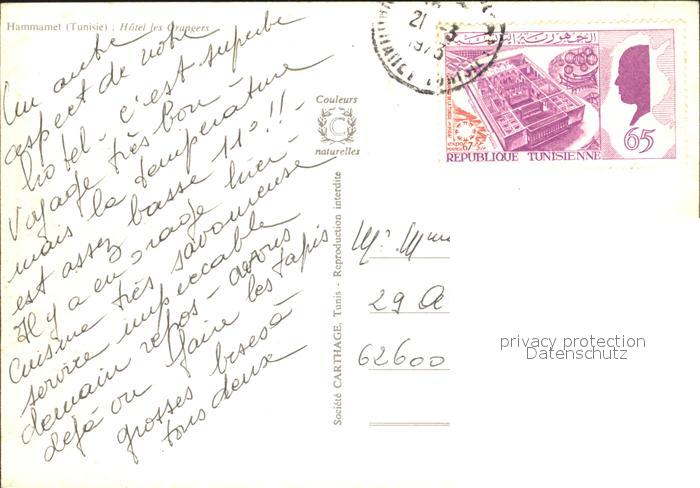 Hammamet (Tunisie) : Hôtel les Orangers
Un autre
aspect de notre
hôtel - c'est superbe
Voyage très bon -
mais la température
est assez basse 11° !! -
Il y a eu orage hier -
Cuisine très savoureuse
service impeccable
demain repos - avons
déjà vu faire les tapis
grosses bises à
tous deux
Couleurs
C
naturelles
Société CARTHAGE, Tunis - Reproduction interdite
21 -3
1973
الجمهورية التونسية
expo
67
65
REPUBLIQUE TUNISIENNE
29 A
62600
privacy protection
Datenschutz